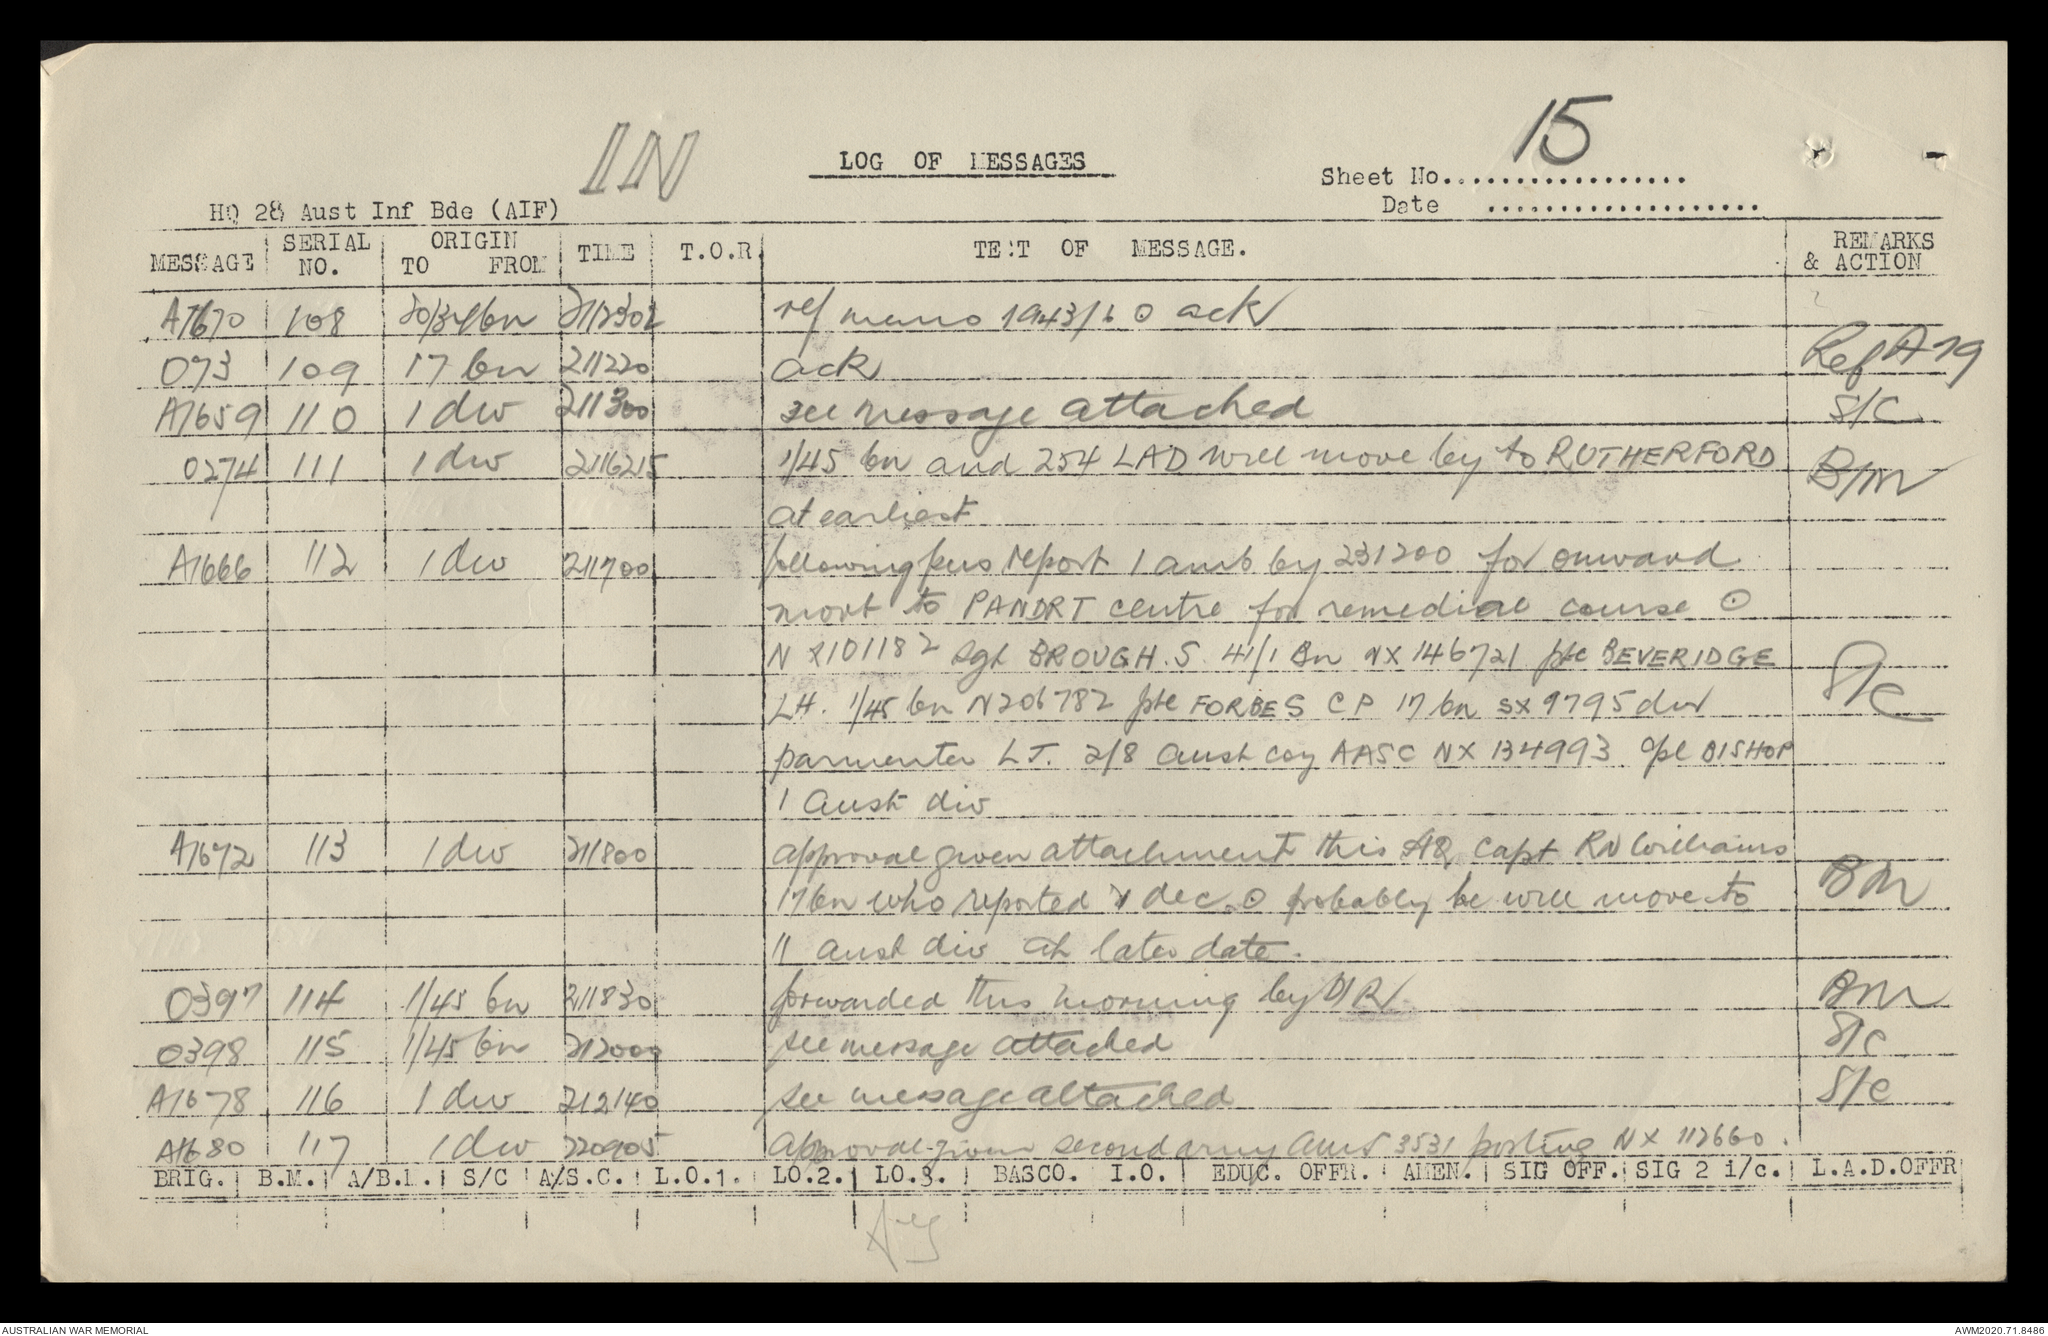 IN
LOG OF MESSAGES
15
Sheet No..................
Date ...................
HQ 28 Aust Inf Bde (AIF)
MESSAGE SERIAL NO. ORIGIN TO FROM TIME T.O.R. TEXT OF MESSAGE. REMARKS & ACTION
A1670 108 20/34 bn ref memo 1943/16 ⊙ ack
073 109 17 bn 211220 ack Ref A79
A1659 110 1 div 211300 see message attached S/C
0274 111 1 div 211621S 1/45 bn and 254 LAD will move by to RUTHERFORD B/M
at earliest
A1666 112 1 div 211700 following pers report 1 amb by 231200 for onward
movt to PANDRT centre for remedial course ⊙
sgt BROUGH. S. 41/1 Bn NX 146721 pte BEVERIDGE S/C
LH. 1/45 bn N206782 pte FORBES C P 17 bn SX 9795 dvr
parmenter LT. 2/8 aust coy AASC NX 134993 cpl BISHOP
1 aust div
A1672 113 1 div 211800 approval given attachment this HQ capt RN Williams BM
17 bn who reported dec. ⊙ probably he will move to
11 aust div at later date.
0397 114 1/45 bn 211830 forwarded this morning by D/R BM
0398 115 1/45 bn 212000 see message attached S/C
A1678 116 1 div 212140 see message attached S/C
A1680 117 1 div 220905 approval given second army 3531 posting NX 112660.
BRIG. B.M. A/B.M. S/C A/S.C. L.O.1. LO.2. LO.3. BASCO. I.O. EDUC. OFFR. AMEN. SIG OFF. SIG 2 i/c. L.A.D.OFFR
AUSTRALIAN WAR MEMORIAL
AWM2020.71.8486